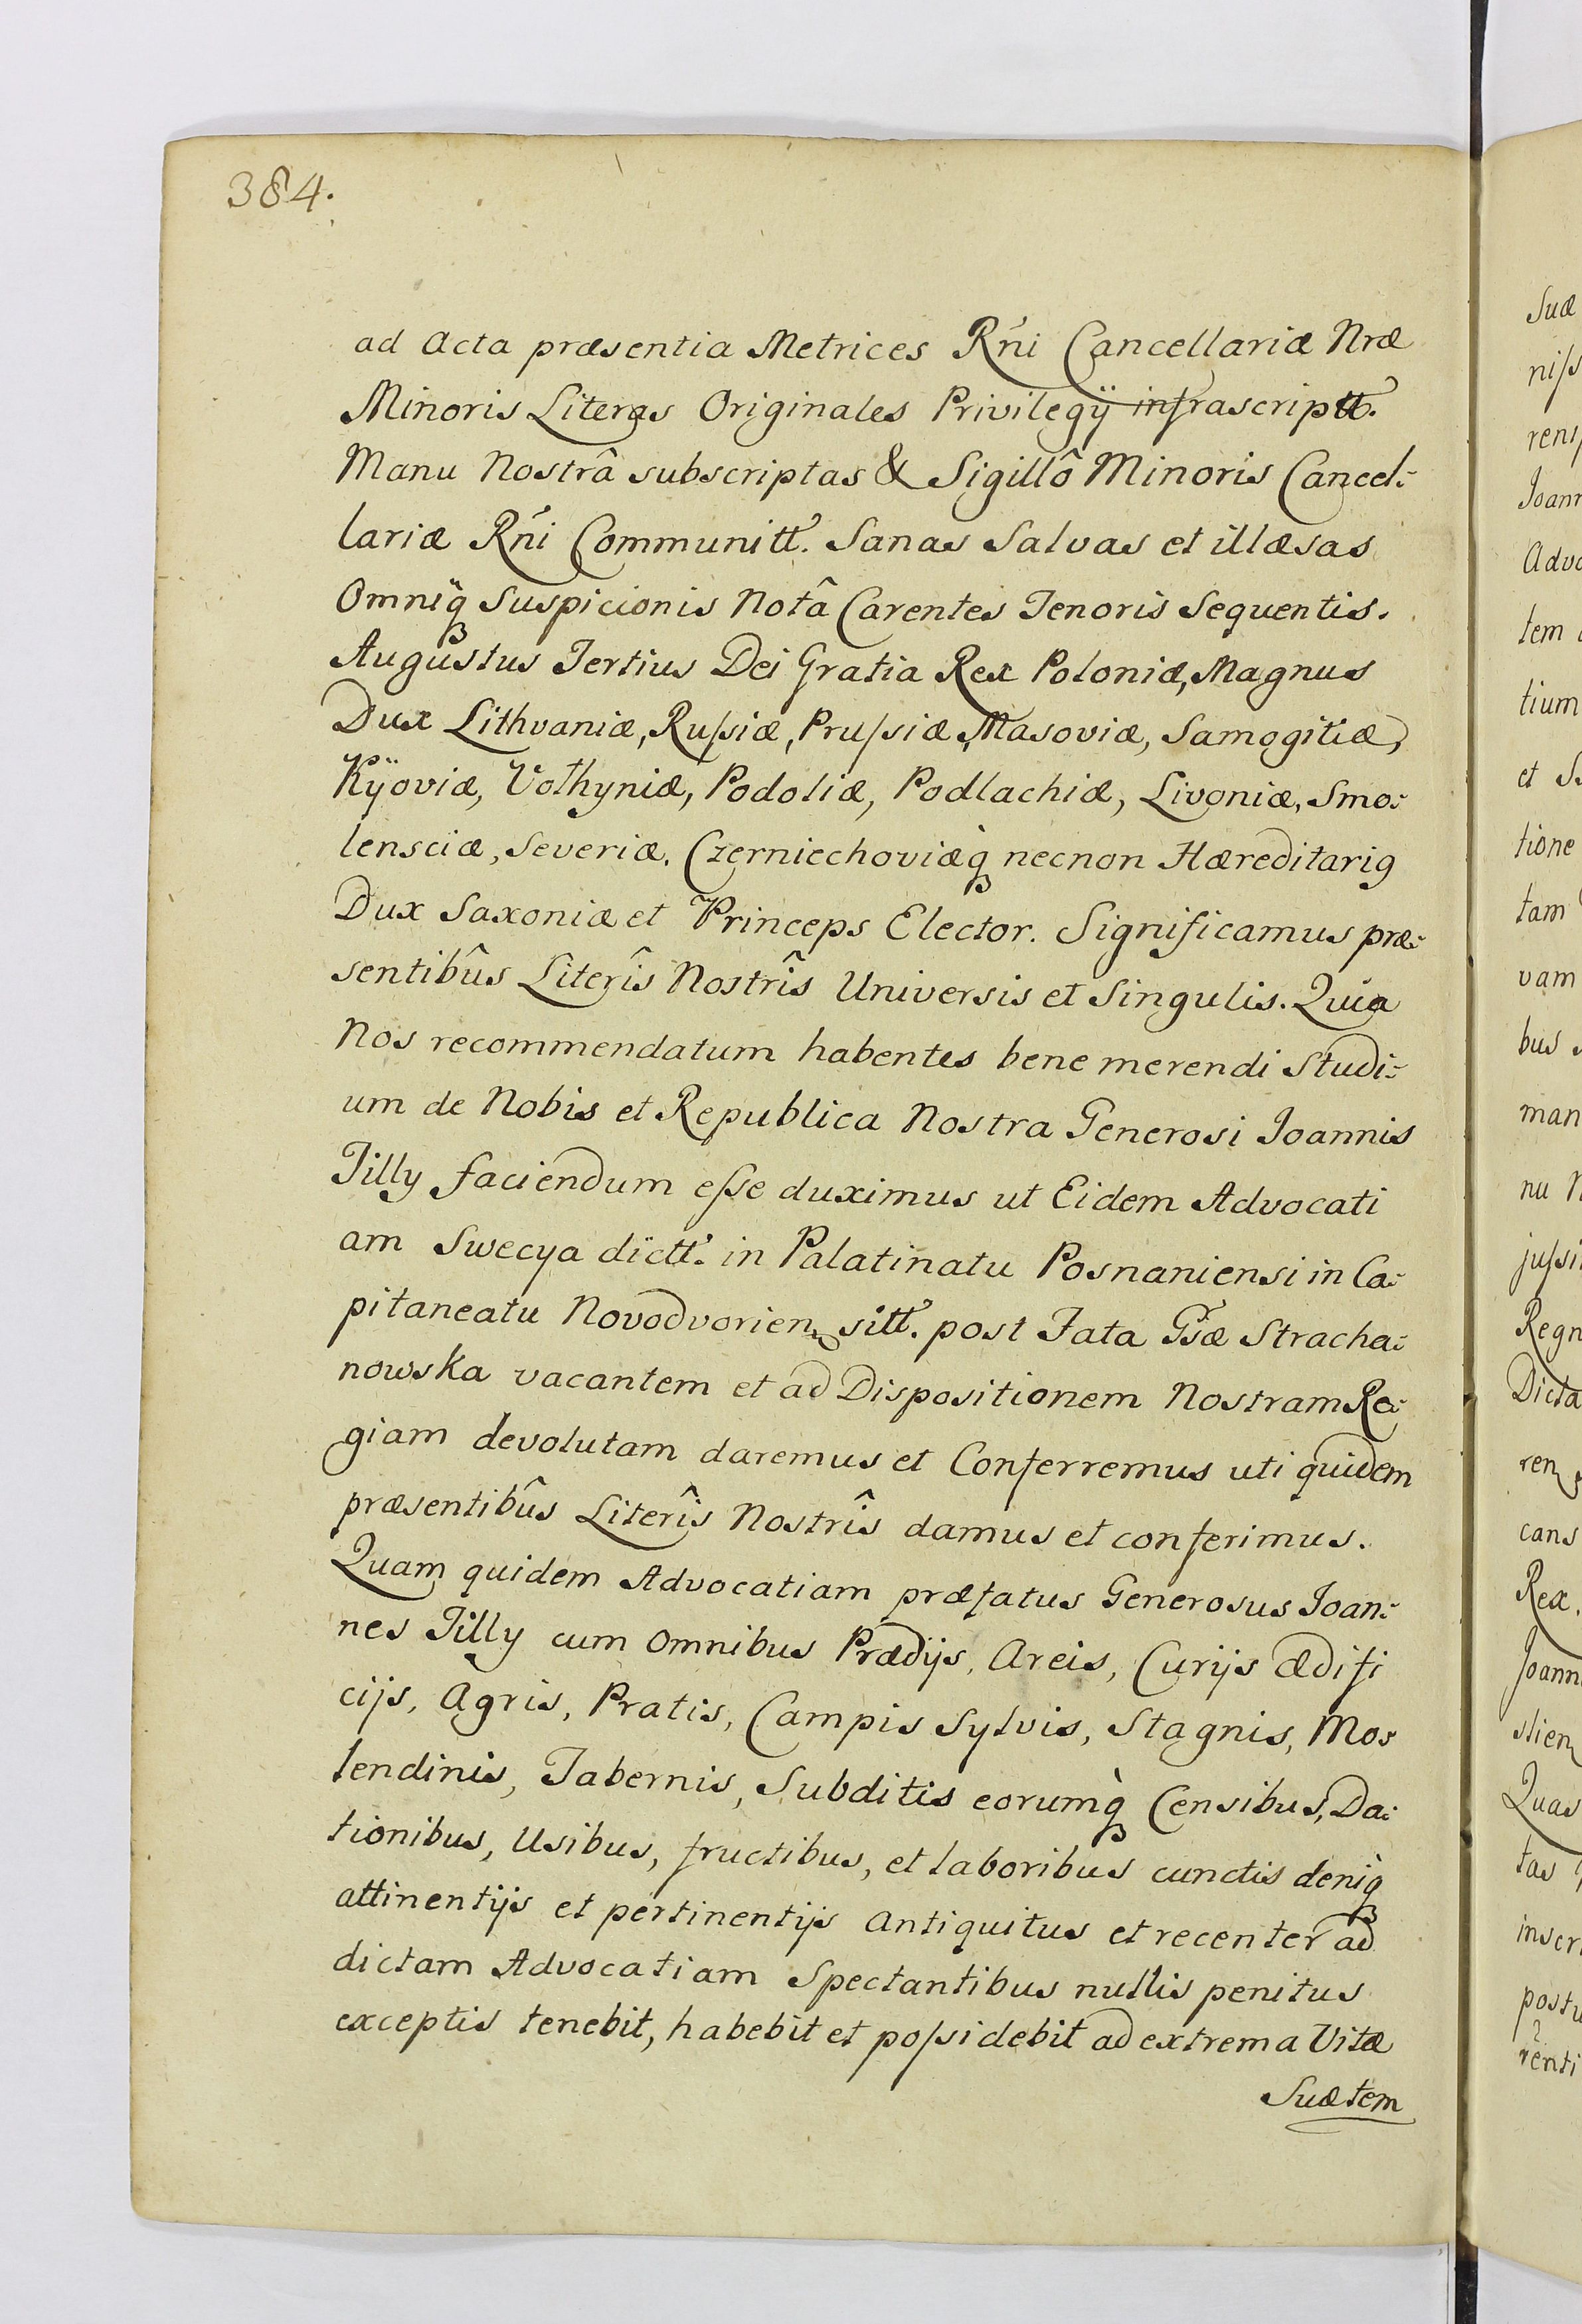 384.
ad Acta præsentia Metrices Rńi Cancellariæ Nræ
Minoris Literas Originales Privilegÿ infrascriptt.
Manu Nostrâ subscriptas & Sigillô Minoris Cancel:
lariæ Rńi Communitt. Sanas Salvas et illæsas
Omniq̀ Suspicionis Notâ Carentes Tenoris Sequentis.
Augustus Tertius Dei Gratia Rex Poloniæ, Magnus
Dux Lithvaniæ, Ruſsiæ, Pruſsiæ, Masoviæ, Samogitiæ,
Kÿoviæ, Volhyniæ, Podoliæ, Podlachiæ, Livoniæ, Smo:
lensciæ, Severiæ, Czerniechoviæq̀ necnon Hæreditariꝯ
Dux Saxoniæ et Princeps Elector. Significamus præ:
sentibûs Literîs Nostrîs Universis et Singulis. Quia
Nos recommendatum habentes bene merendi Studi:
um de Nobis et Republica Nostra Generosi Joannis
Tilly faciendum eſse duximus ut Eidem Advocati
am Swecya dictt. in Palatinatu Posnaniensi in Ca:
pitaneatu Novodvorien, sitt. post Fata Gsæ Stracha:
nowska vacantem et ad Dispositionem Nostram Re:
giam devolutam daremus et Conferremus uti quidem
præsentibûs Literîs Nostrîs damus et conferimus.
Quam quidem Advocatiam præfatus Generosus Joan:
nes Tilly cum omnibus Prædijs, Areis, Curijs ædifi
cijs, Agris, Pratis, Campis Sylvis, Stagnis, Mo:
lendinis, Tabernis, Subditis eorumq̀ Censibus, Da:
tionibus, Usibus, fructibus, et laboribus cunctis deniq̀
attinentijs et pertinentijs Antiquitus et recenter ad
dictam Advocatiam Spectantibus nullis penitus
exceptis tenebit, habebit et poſsidebit ad extrema Vitæ
Suæ tem
Suæ
niſs
renſ
Joann
Advo
tem
tium
et S
tione
tam
vam
bus
man
nu N
juſsi
Regn
Dicta
ren
cans
Rex.
Joann
slien
Quas
tas
inscr
postu
renti